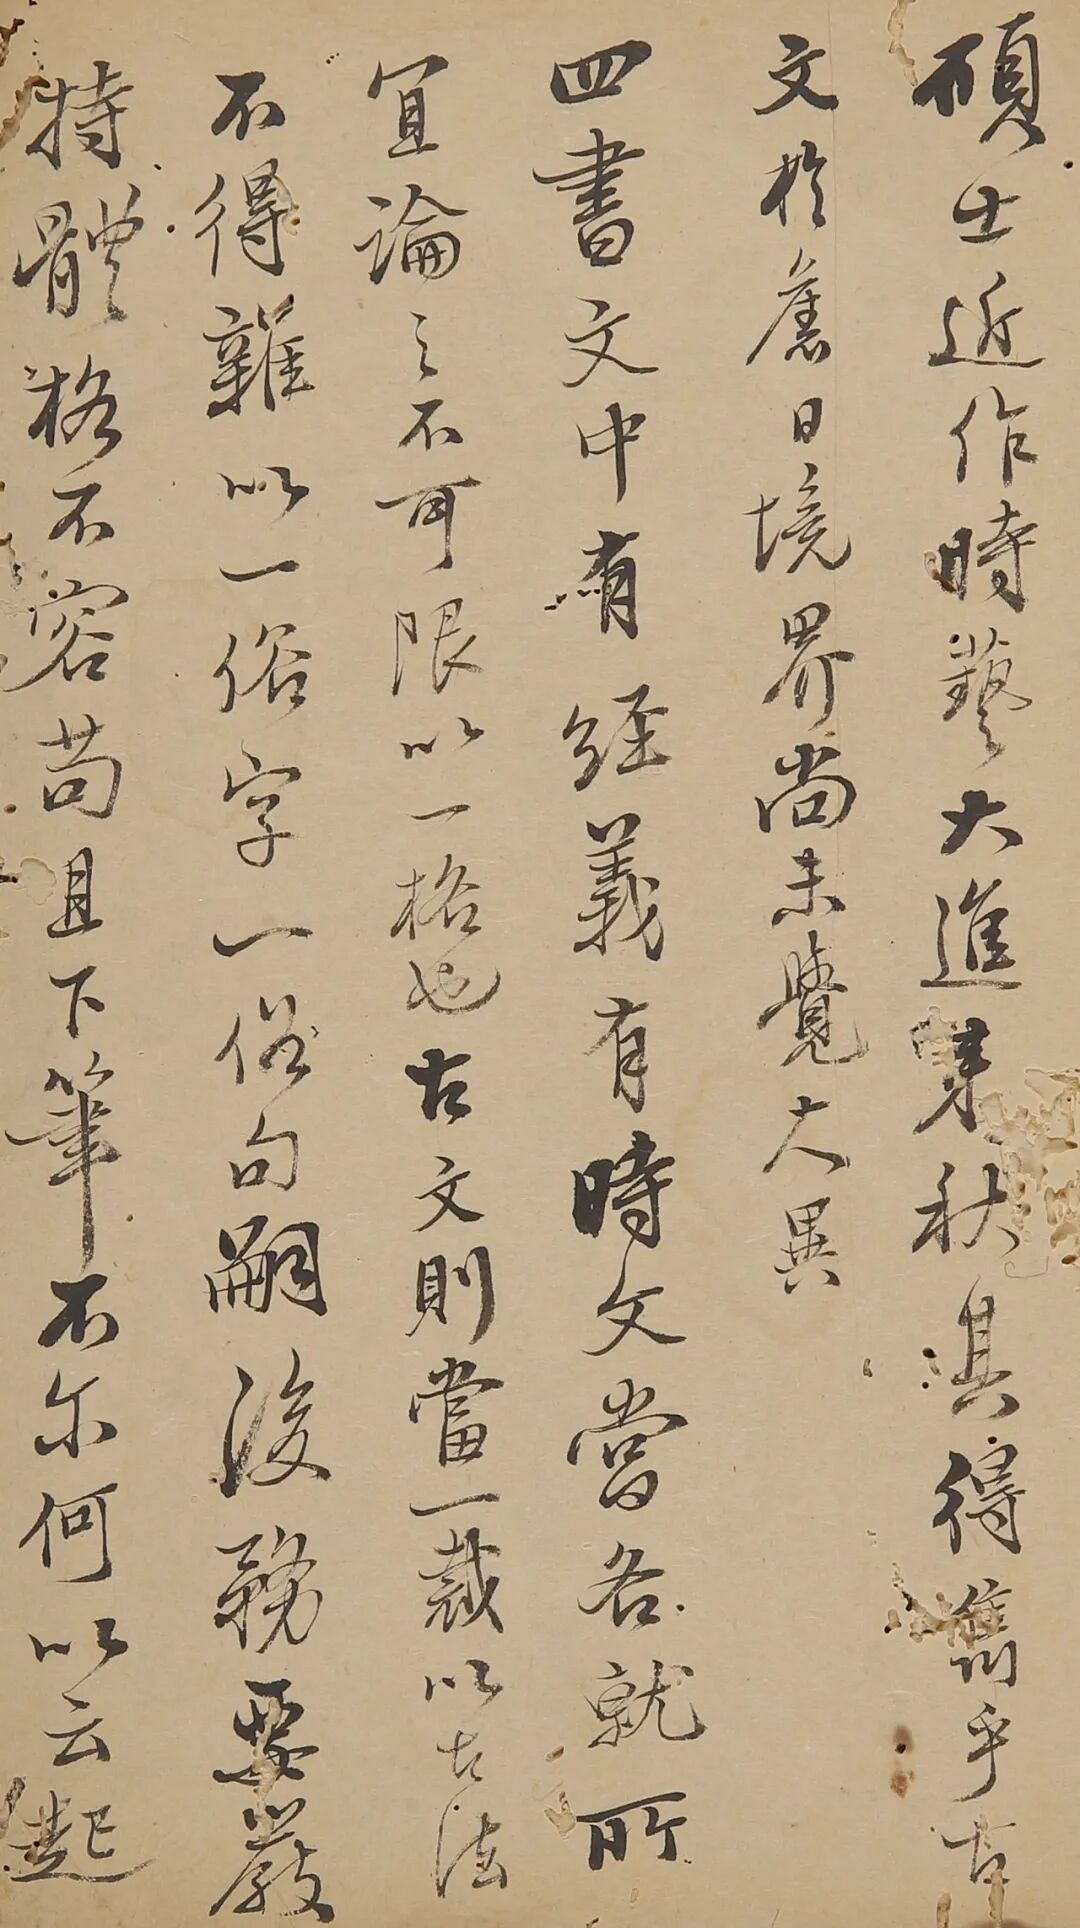 碩士近作時藝大進葉秋其得雋乎古
文於舊日境界尚未覺大異
四書文中有經義有時文當各就所
宜論之不可限以一格也古文則當一裁以古法
不得雜以一俗字一俗句嗣後務要嚴
持體格不容苟且下筆不尔何以云起